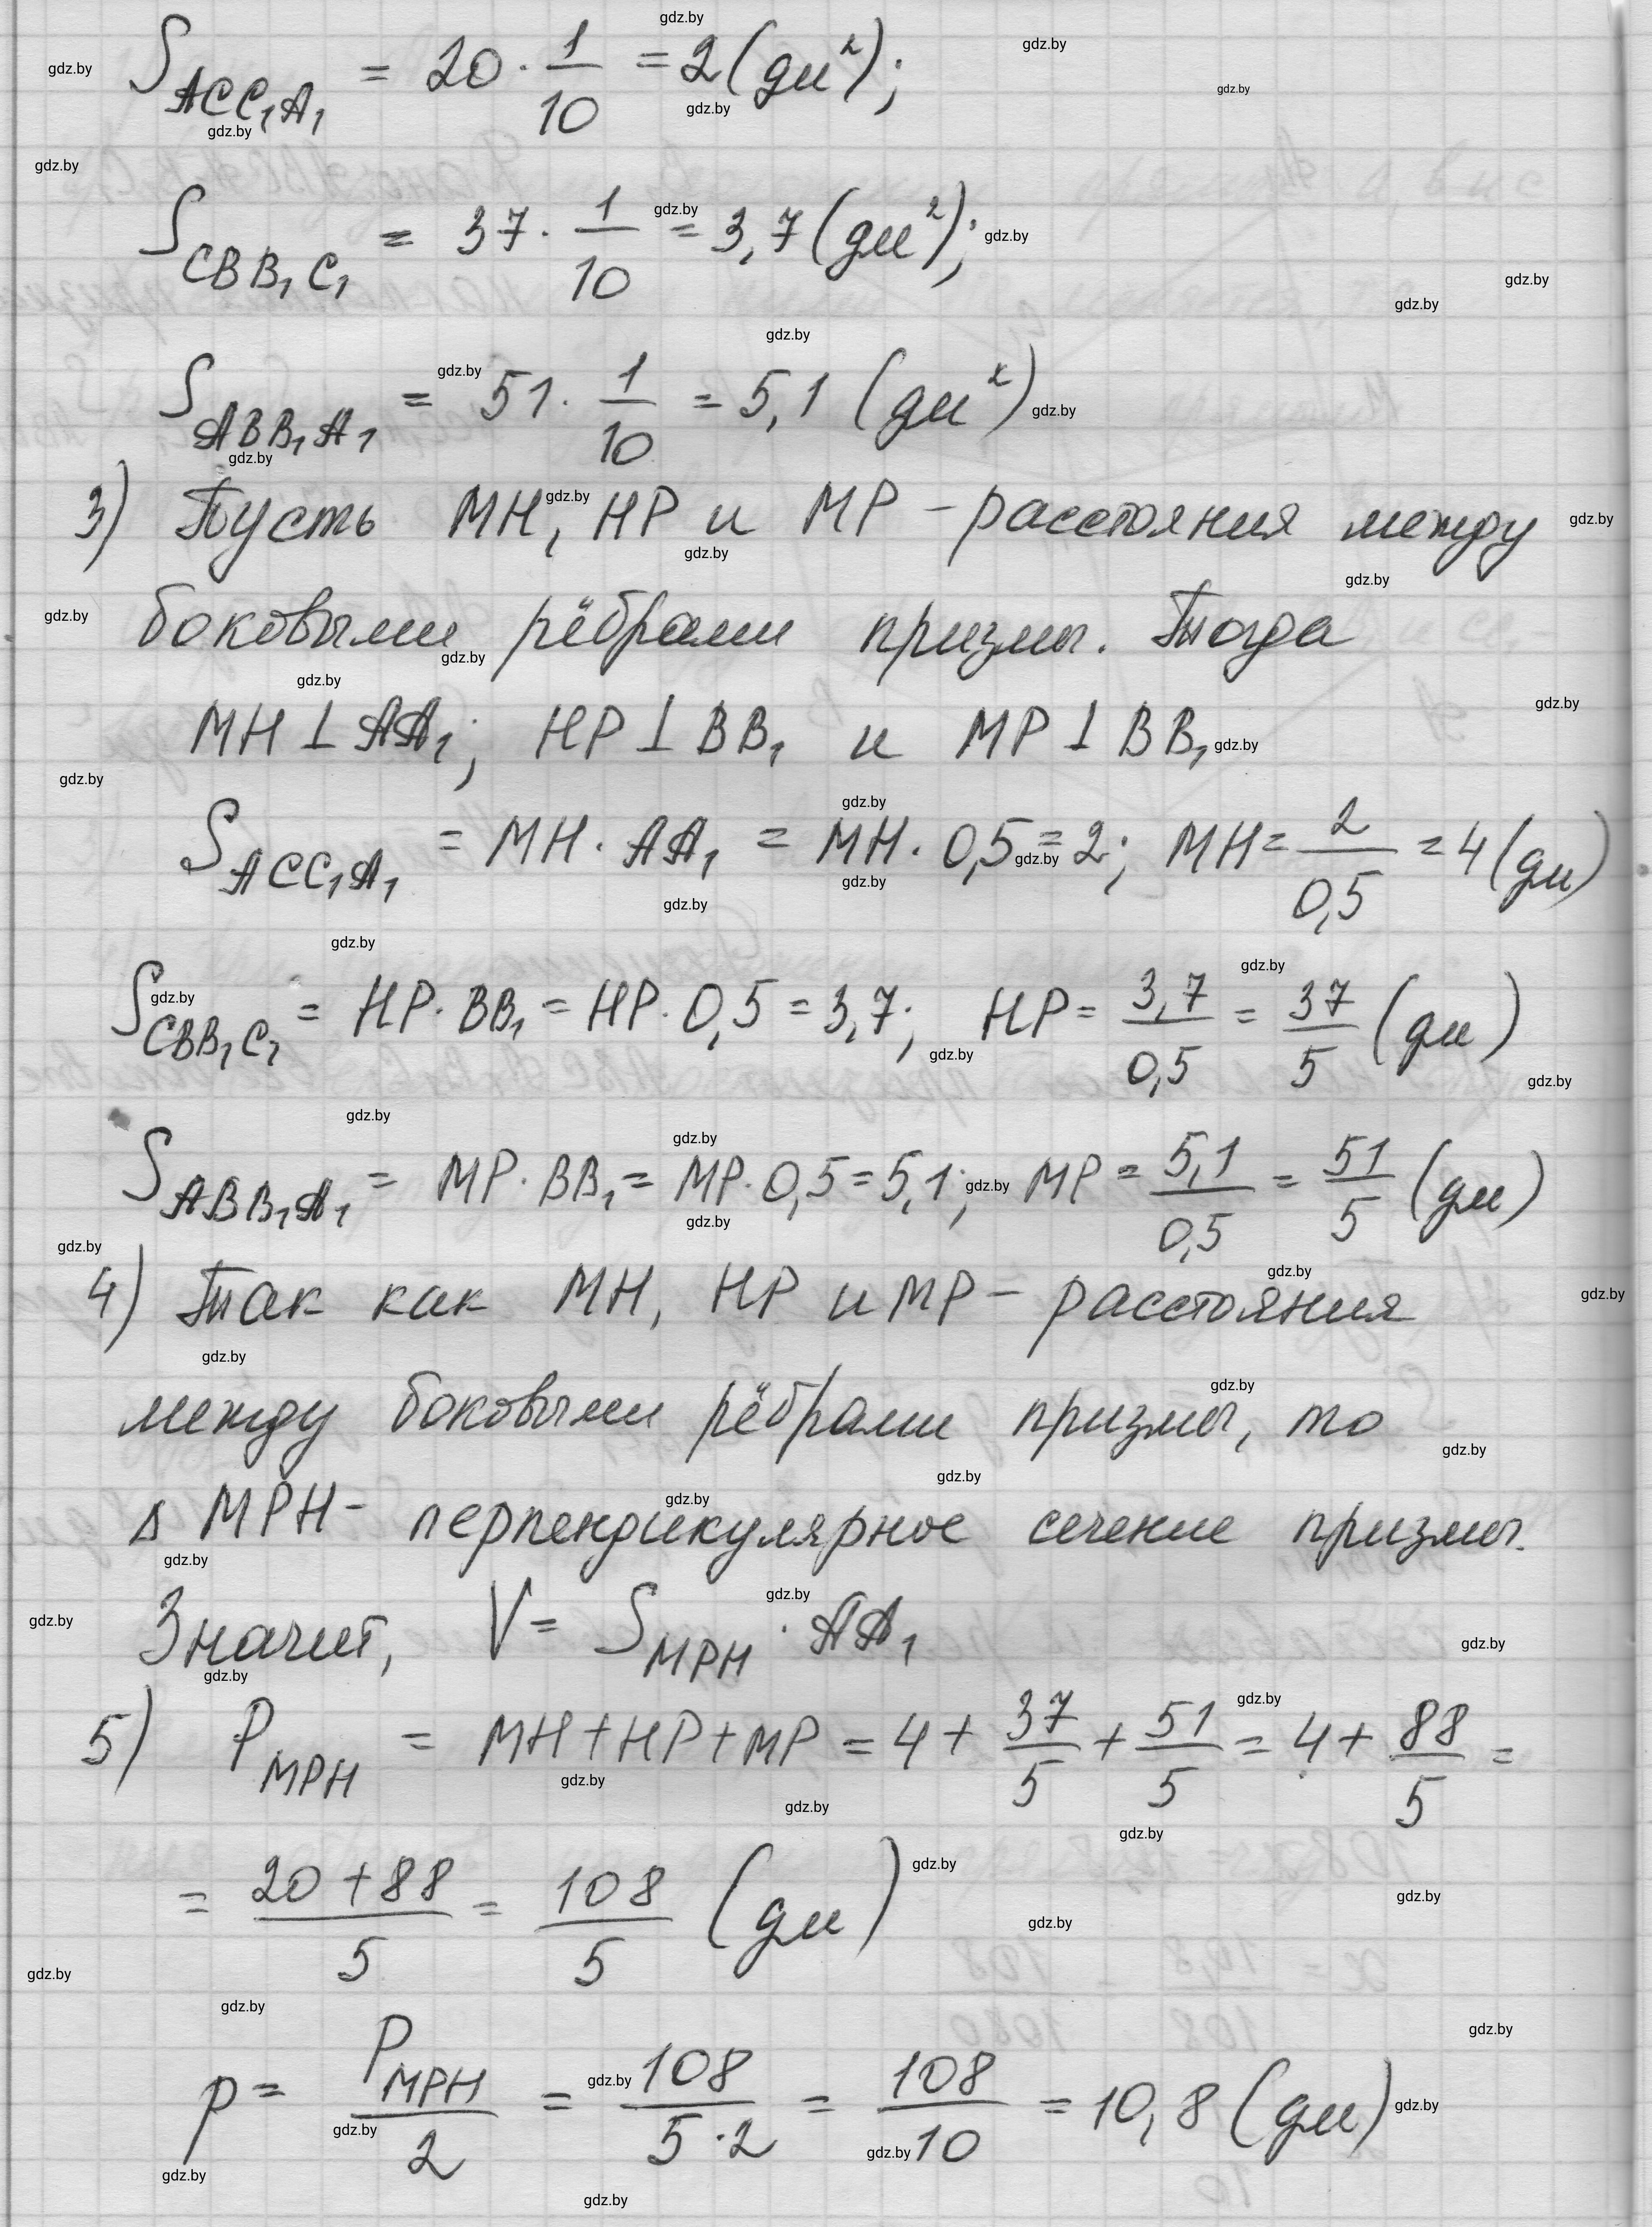 S_{ACC₁A₁} = 20 · 1/10 = 2 (дм²);
S_{CBB₁C₁} = 37 · 1/10 = 3,7 (дм²);
S_{ABB₁A₁} = 51 · 1/10 = 5,1 (дм²)
3) Пусть MH, HP и MP - расстояния между
боковыми рёбрами призмы. Тогда
MH ⊥ AA₁; HP ⊥ BB₁ и MP ⊥ BB₁
S_{ACC₁A₁} = MH · AA₁ = MH · 0,5 = 2; MH = 2/0,5 = 4 (дм)
S_{CBB₁C₁} = HP · BB₁ = HP · 0,5 = 3,7; HP = 3,7/0,5 = 37/5 (дм)
S_{ABB₁A₁} = MP · BB₁ = MP · 0,5 = 5,1; MP = 5,1/0,5 = 51/5 (дм)
4) Так как MH, HP и MP - расстояния
между боковыми рёбрами призмы, то
Δ MPH - перпендикулярное сечение призмы.
Значит, V = S_{MPH} · AA₁
5) P_{MPH} = MH + HP + MP = 4 + 37/5 + 51/5 = 4 + 88/5 =
= (20 + 88)/5 = 108/5 (дм)
p = P_{MPH}/2 = 108/(5 · 2) = 108/10 = 10,8 (дм)
gdz.by